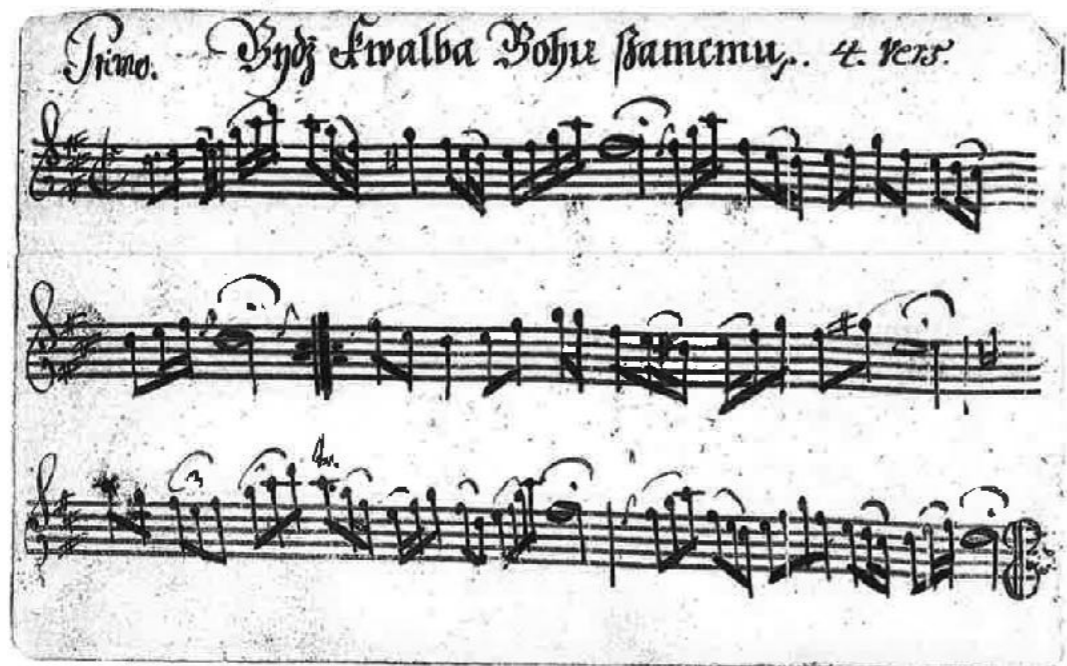 Primo. Bydź kwalba Bohu ßamemu,. 4. vers.
3